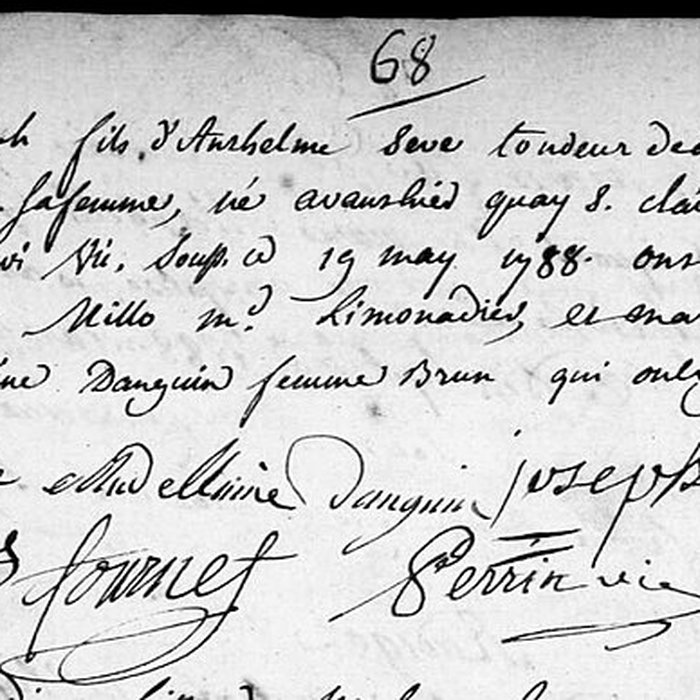 68
fils d'Anthelme Seve tondeur de
sa femme, né avant hier quay S. clai
19 may 1788. ont
Millo md. Limonadier, et ma
ine Danguin femme Brun qui ont
Madellaine Danguin joseph
fournet Perrin vic